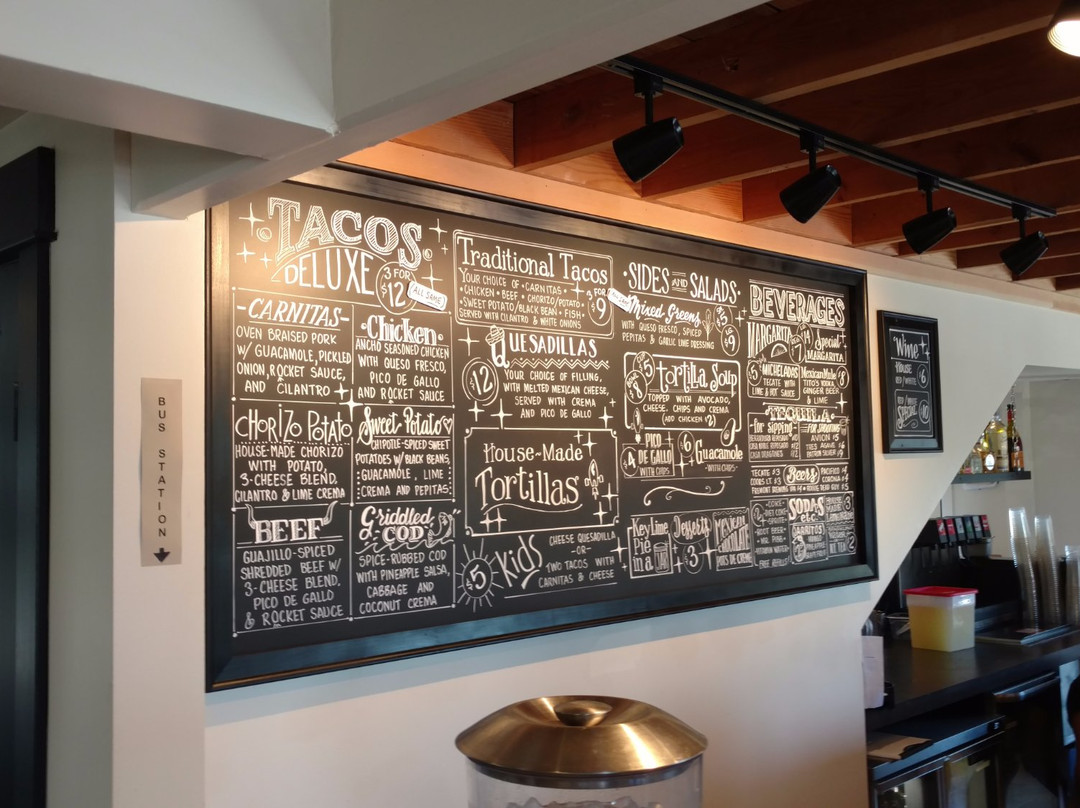 TACOS
DELUXE
3 FOR
$12
(ALL SAME)
-CARNITAS-
OVEN BRAISED PORK
W/ GUACAMOLE, PICKLED
ONION, ROCKET SAUCE,
AND CILANTRO
Chicken
ANCHO SEASONED CHICKEN
WITH QUESO FRESCO,
PICO DE GALLO
AND ROCKET SAUCE
CHORIZO POTATO
HOUSE-MADE CHORIZO
WITH POTATO,
3-CHEESE BLEND,
CILANTRO & LIME CREMA
Sweet Potato
CHIPOTLE-SPICED SWEET
POTATOES W/ BLACK BEANS
GUACAMOLE, LIME
CREMA AND PEPITAS
BEEF
GUAJILLO-SPICED
SHREDDED BEEF W/
3-CHEESE BLEND,
PICO DE GALLO
& ROCKET SAUCE
Griddled
COD
SPICE-RUBBED COD
WITH PINEAPPLE SALSA,
CABBAGE AND
COCONUT CREMA
Traditional Tacos
YOUR CHOICE OF • CARNITAS •
• CHICKEN • BEEF • CHORIZO/POTATO •
• SWEET POTATO/BLACK BEAN • FISH •
SERVED WITH CILANTRO & WHITE ONIONS
3 FOR
$9
QUESADILLAS
$12
YOUR CHOICE OF FILLING,
WITH MELTED MEXICAN CHEESE,
SERVED WITH CREMA
AND PICO DE GALLO
House-Made
Tortillas
$5
Kids
CHEESE QUESADILLA
-OR-
TWO TACOS WITH
CARNITAS & CHEESE
• SIDES AND SALADS •
Mixed Greens
WITH QUESO FRESCO, SPICED
PEPITAS & GARLIC LIME DRESSING
$5
$9
$5
$8
Tortilla Soup
TOPPED WITH AVOCADO,
CHEESE, CHIPS AND CREMA
(ADD CHICKEN $2)
$4
PICO
DE GALLO
WITH CHIPS
$6
Guacamole
-WITH CHIPS-
Key Lime
Pie
in a
Desserts
$3
MEXICAN
CHOCOLATE
POTS DE CREME
BEVERAGES
MARGARITA
Special
MARGARITA
$5
MICHELADAS
TECATE WITH
LIME & HOT SAUCE
Mexican Mule
TITO'S VODKA,
GINGER BEER
& LIME
$8
TEQUILA
-for sipping-
FOR SHOOTING
AVION $5
TRES AGAVES
PATRON SILVER
TECATE $3
Beers
PACIFICO $4
CORONA $4
SODAS
etc.
JARRITOS
Wine
HOUSE
RED/WHITE
$6
Special
$10
BUS STATION